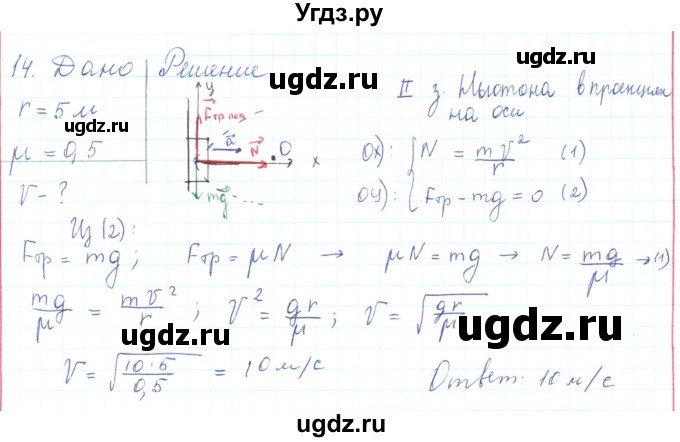 Угдз.ру
14. Дано Решение
r = 5 м
μ = 0,5
V - ?
y
Fтр.пок
a
N
O
x
mg
II з. Ньютона в проекции
на оси
OX): N = mV²/r (1)
OY): Fтр - mg = 0 (2)
Из (2):
Fтр = mg; Fтр = μN → μN = mg → N = mg/μ → (1)
mg/μ = mV²/r; V² = gr/μ; V = √(gr/μ)
V = √(10·5/0,5) = 10 м/с
Ответ: 10 м/с
ugdz.ru
ugdz.ru
ugdz.ru
ugdz.ru
ugdz.ru